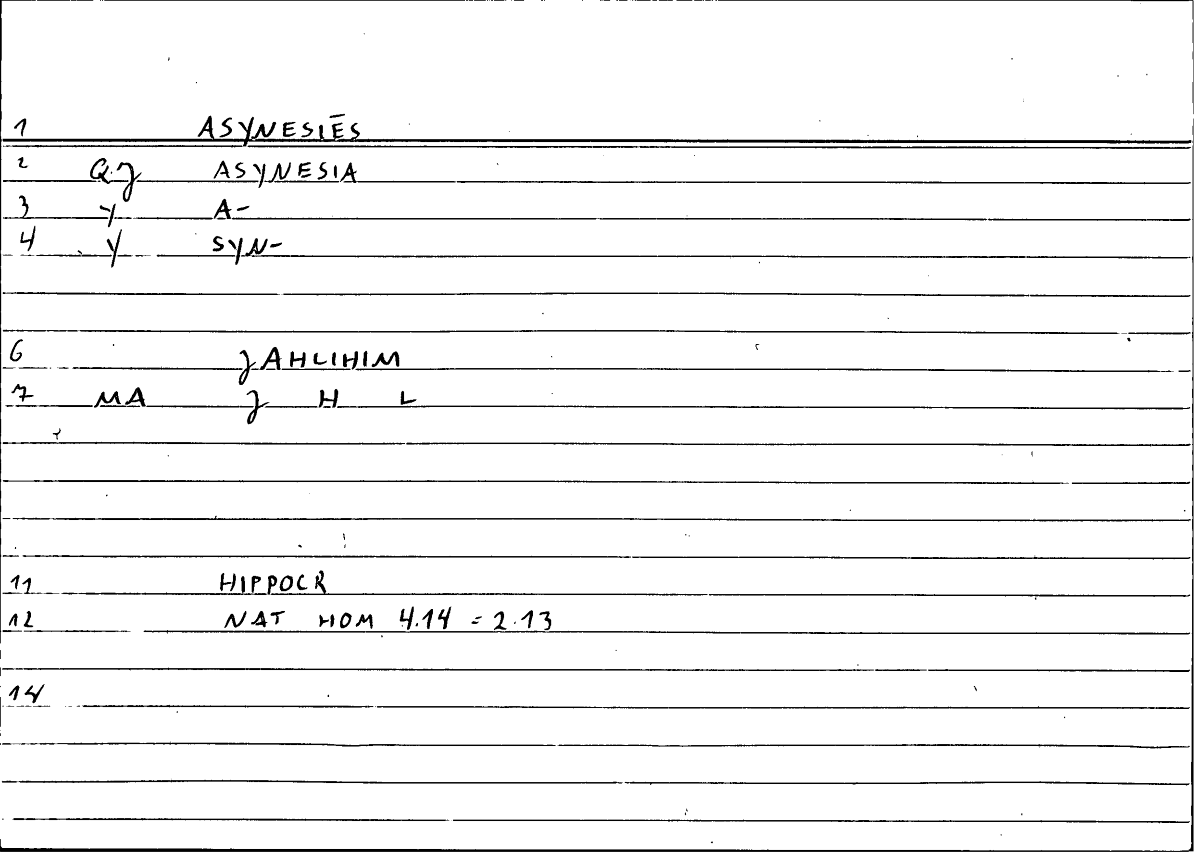 1 ASYNESIĒS
2 QJ ASYNESIA
3 Y A-
4 Y SYN-
6 JAHLIHIM
7 MA J H L
11 HIPPOCR
12 NAT HOM 4.14 = 2.13
14